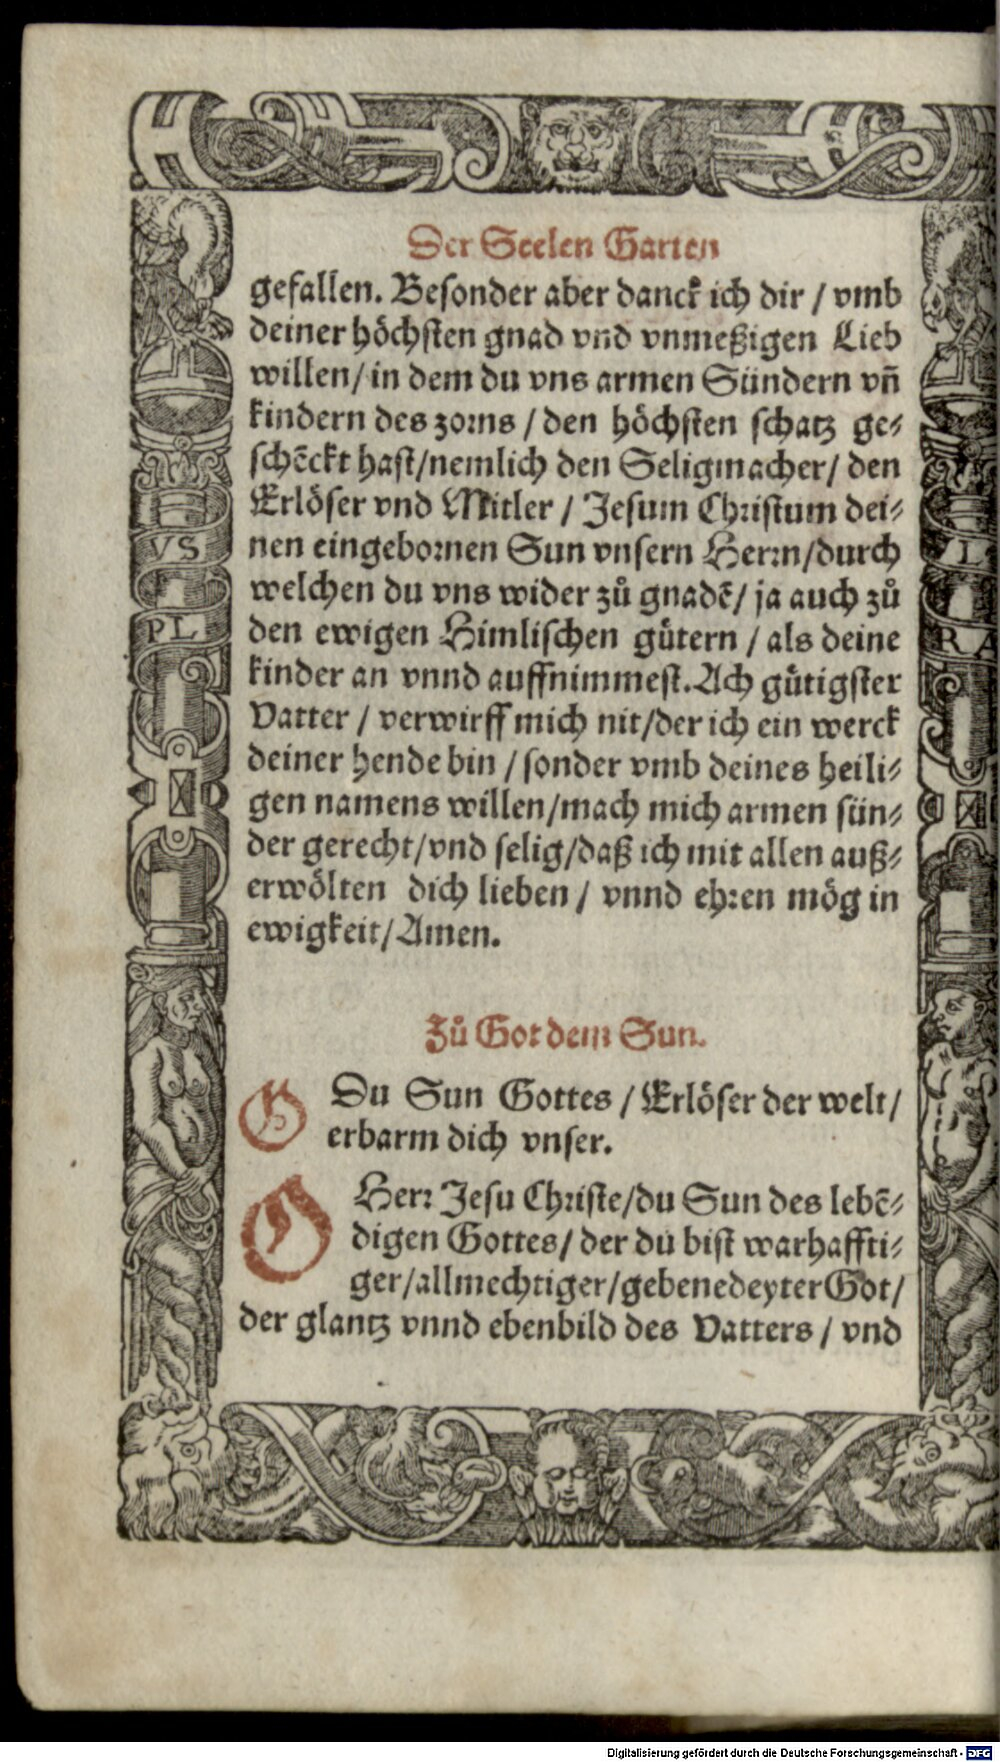 Der Seelen Garten
gefallen. Besonder aber danck ich dir / vmb
deiner höchsten gnad vnd vnmeßigen Lieb
willen / in dem du vns armen Sündern vñ
kindern des zorns / den höchsten schatz ge-
schēckt hast / nemlich den Seligmacher / den
Erlöser vnd Mitler / Jesum Christum dei-
nen eingebornen Sun vnsern Herrn / durch
welchen du vns wider zů gnadē / ja auch zů
den ewigen Himlischen gůtern / als deine
kinder an vnnd auffnimmest. Ach gůtigster
Vatter / verwirff mich nit / der ich ein werck
deiner hende bin / sonder vmb deines heili-
gen namens willen / mach mich armen sün-
der gerecht / vnd selig / daß ich mit allen auß-
erwölten dich lieben / vnnd ehren mög in
ewigkeit / Amen.
Zů Got dem Sun.
O Du Sun Gottes / Erlöser der welt /
erbarm dich vnser.
O Herr Jesu Christe / du Sun des lebē-
digen Gottes / der du bist warhaffti-
ger / allmechtiger / gebenedeyter Got /
der glantz vnnd ebenbild des Vatters / vnd
VS
PL
L
RA
Digitalisierung gefördert durch die Deutsche Forschungsgemeinschaft - DFG